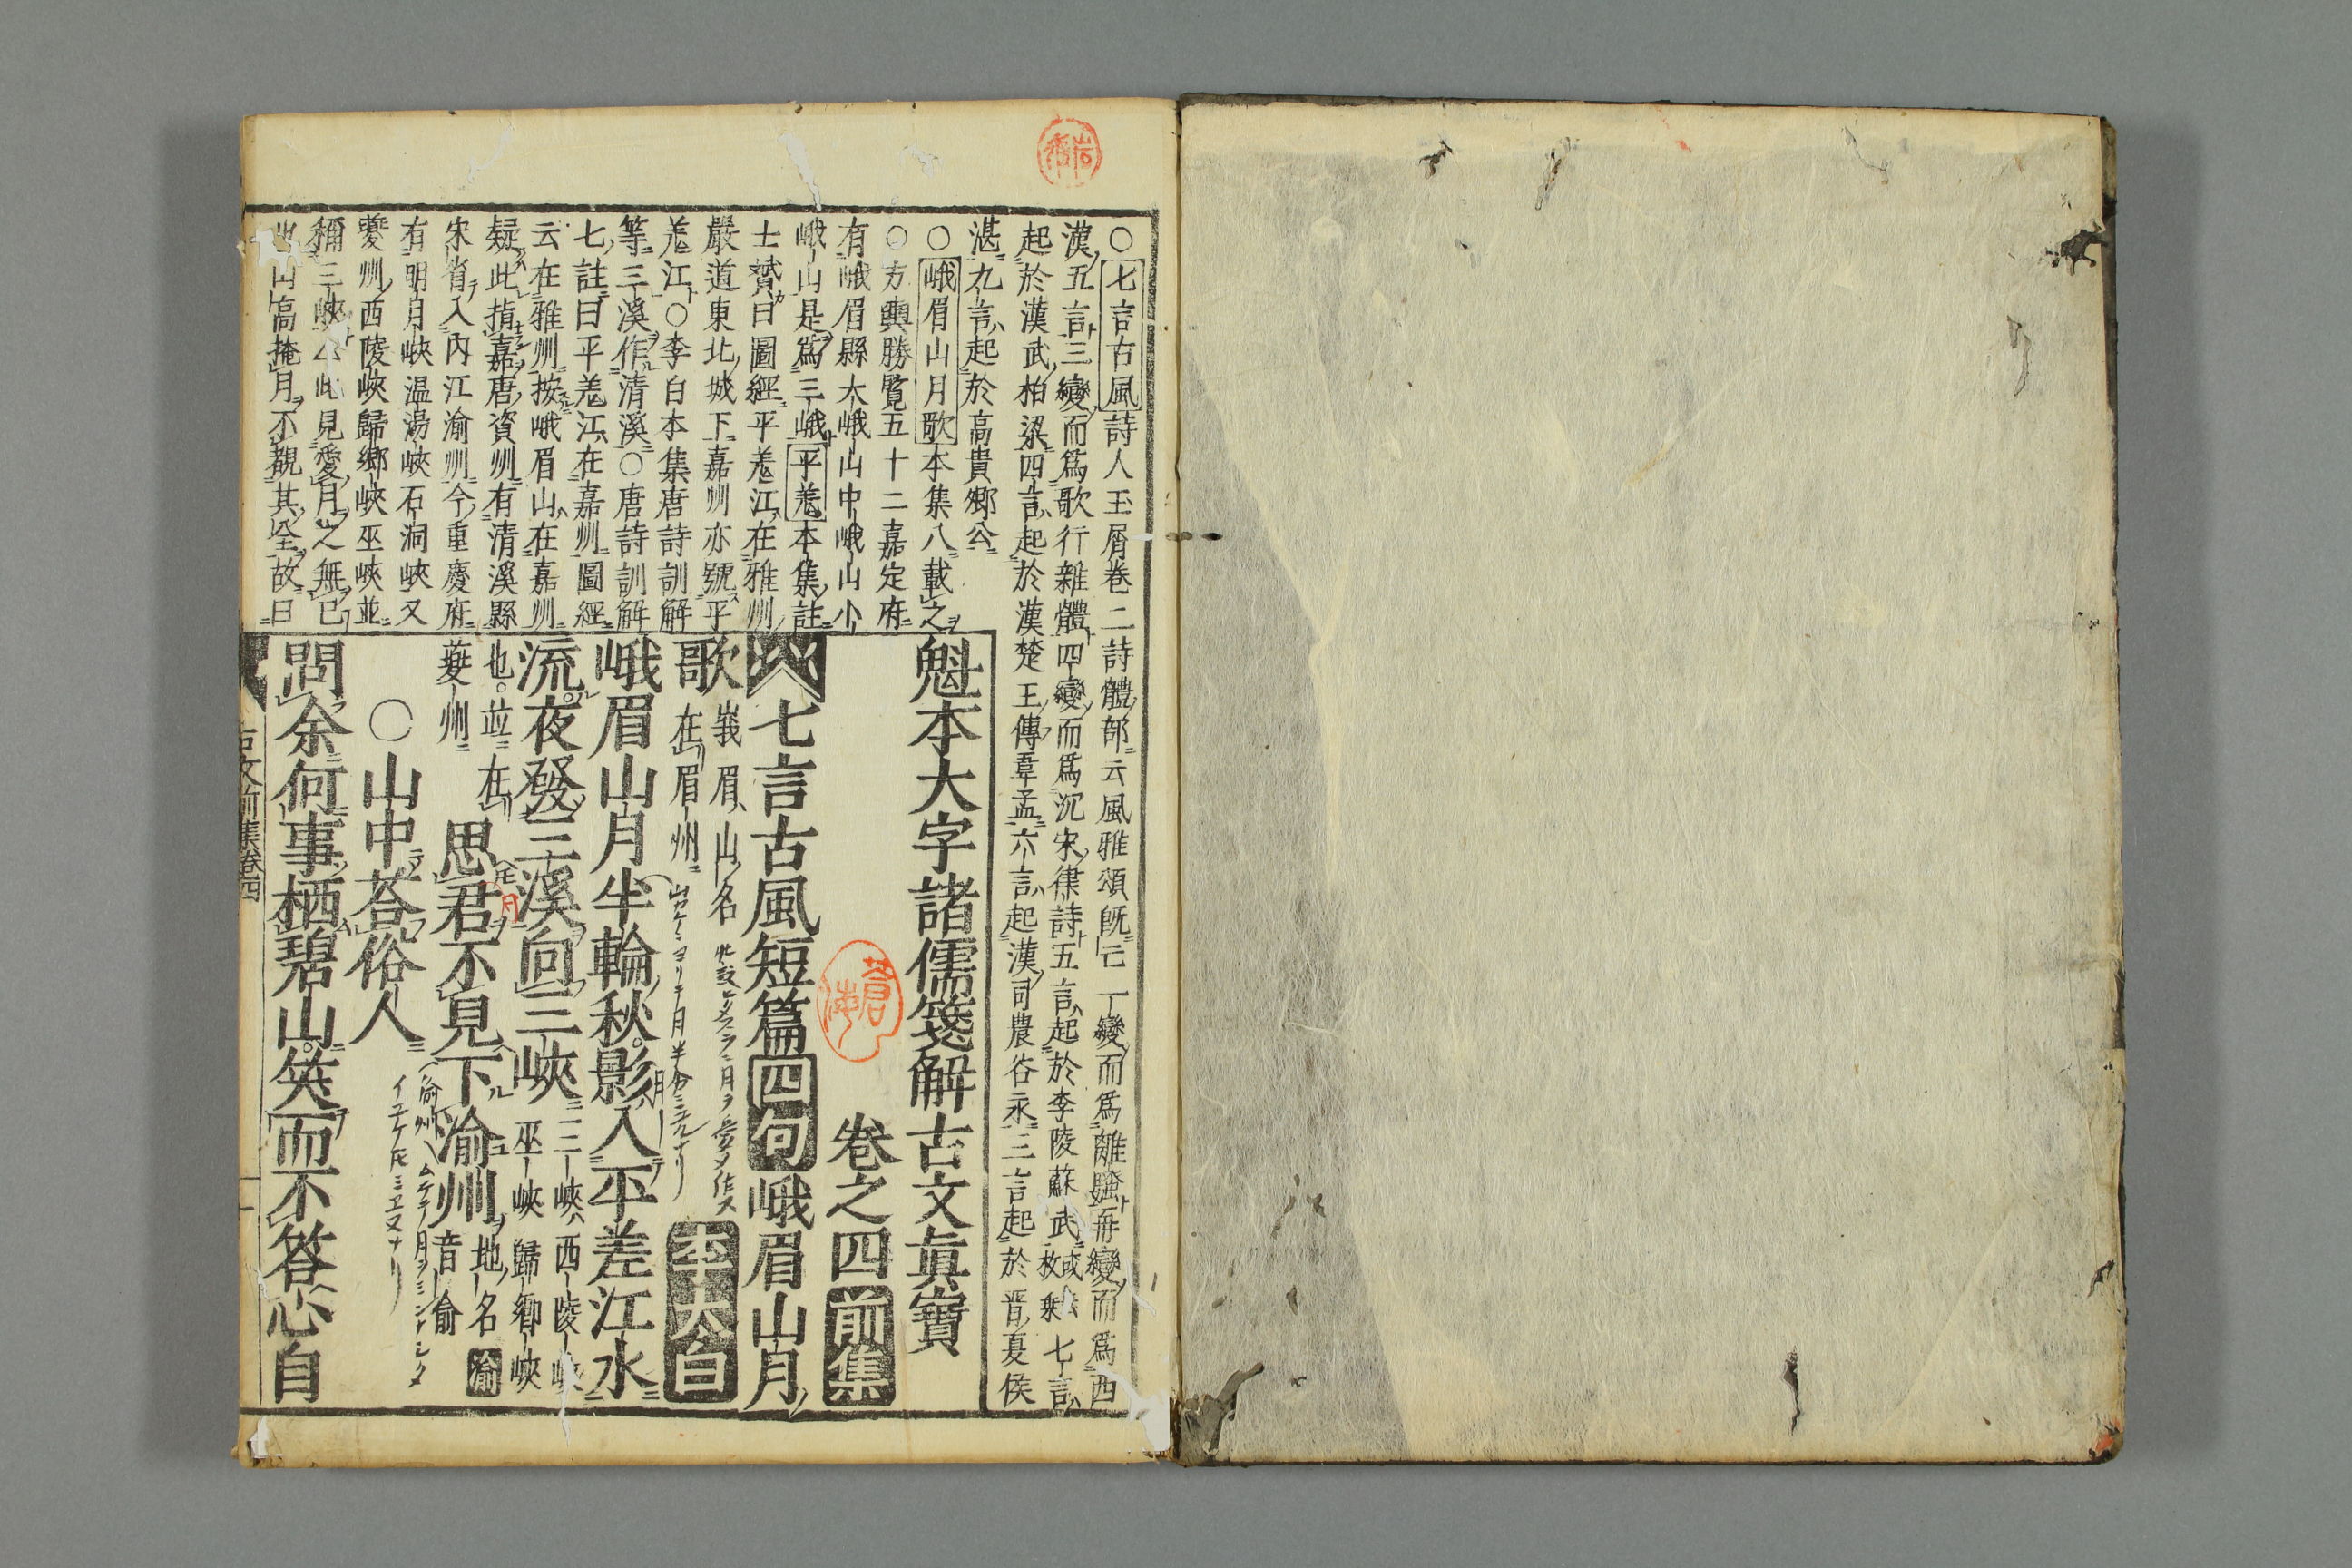 ○七言古風詩人玉屑卷二詩體部云風雅頌既亡一變而爲離騷再變而爲西
漢五言三變而爲歌行雜體四變而爲沉宋律詩五言起於李陵蘇武或枚乘七言
起於漢武柏梁四言起於漢楚王傅韋孟六言起漢司農谷永三言起於晋夏侯
湛九言起於高貴鄉公
○峨眉山月歌本集八載之
○方輿勝覽五十二嘉定府
有峨眉縣大峨山中峨山小
峨山是爲三峨平羗本集註
士贇曰圖經平羗江在雅州
嚴道東北城下嘉州亦號平
羗江○李白本集唐詩訓解
等三溪作清溪○唐詩訓解
七註曰平羗江在嘉州圖經
云在雅州按峨眉山在嘉州
疑此指嘉唐資州有清溪縣
宋省入內江渝州今重慶府
有明月峽温湯峽石洞峽又
夔州西陵峽歸鄉峽巫峽並
稱三峽 此見愛月之無已
山高掩月不覩其全故曰
魁本大字諸儒箋解古文眞寶
卷之四前集
七言古風短篇四句峨眉山月
歌
峩眉山名
在眉州
李太白
峨眉山月半輪秋影入平羌江水
流夜發三溪向三峽
三峽西陵峽
巫峽歸鄉峽
也並在
夔州
思君不見下渝州
地名渝
音俞
○山中荅俗人
問余何事栖碧山笑而不答心自
古文前集卷四
一